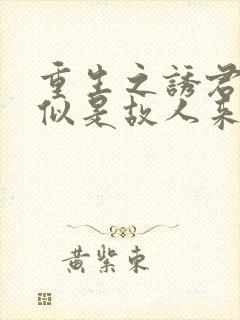 重生之誘君
似是故人來
黃紫東